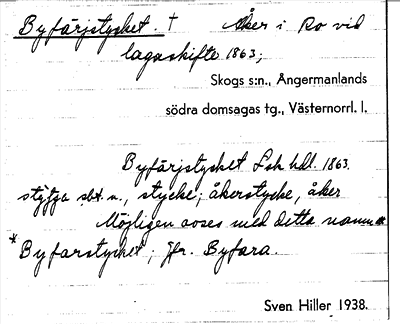 Byfärjstycket. † Åker i Ro vid
lagaskifte 1863;
Skogs s:n., Ångermanlands
södra domsagas tg., Västernorrl. l.
Byfärjstycket Lsk hdl. 1863.
sbt. n., stycke; åkerstycke, åker
Möjligen avses med detta namn
*Byfarstycket; jfr. Byfara.
Sven Hiller 1938.